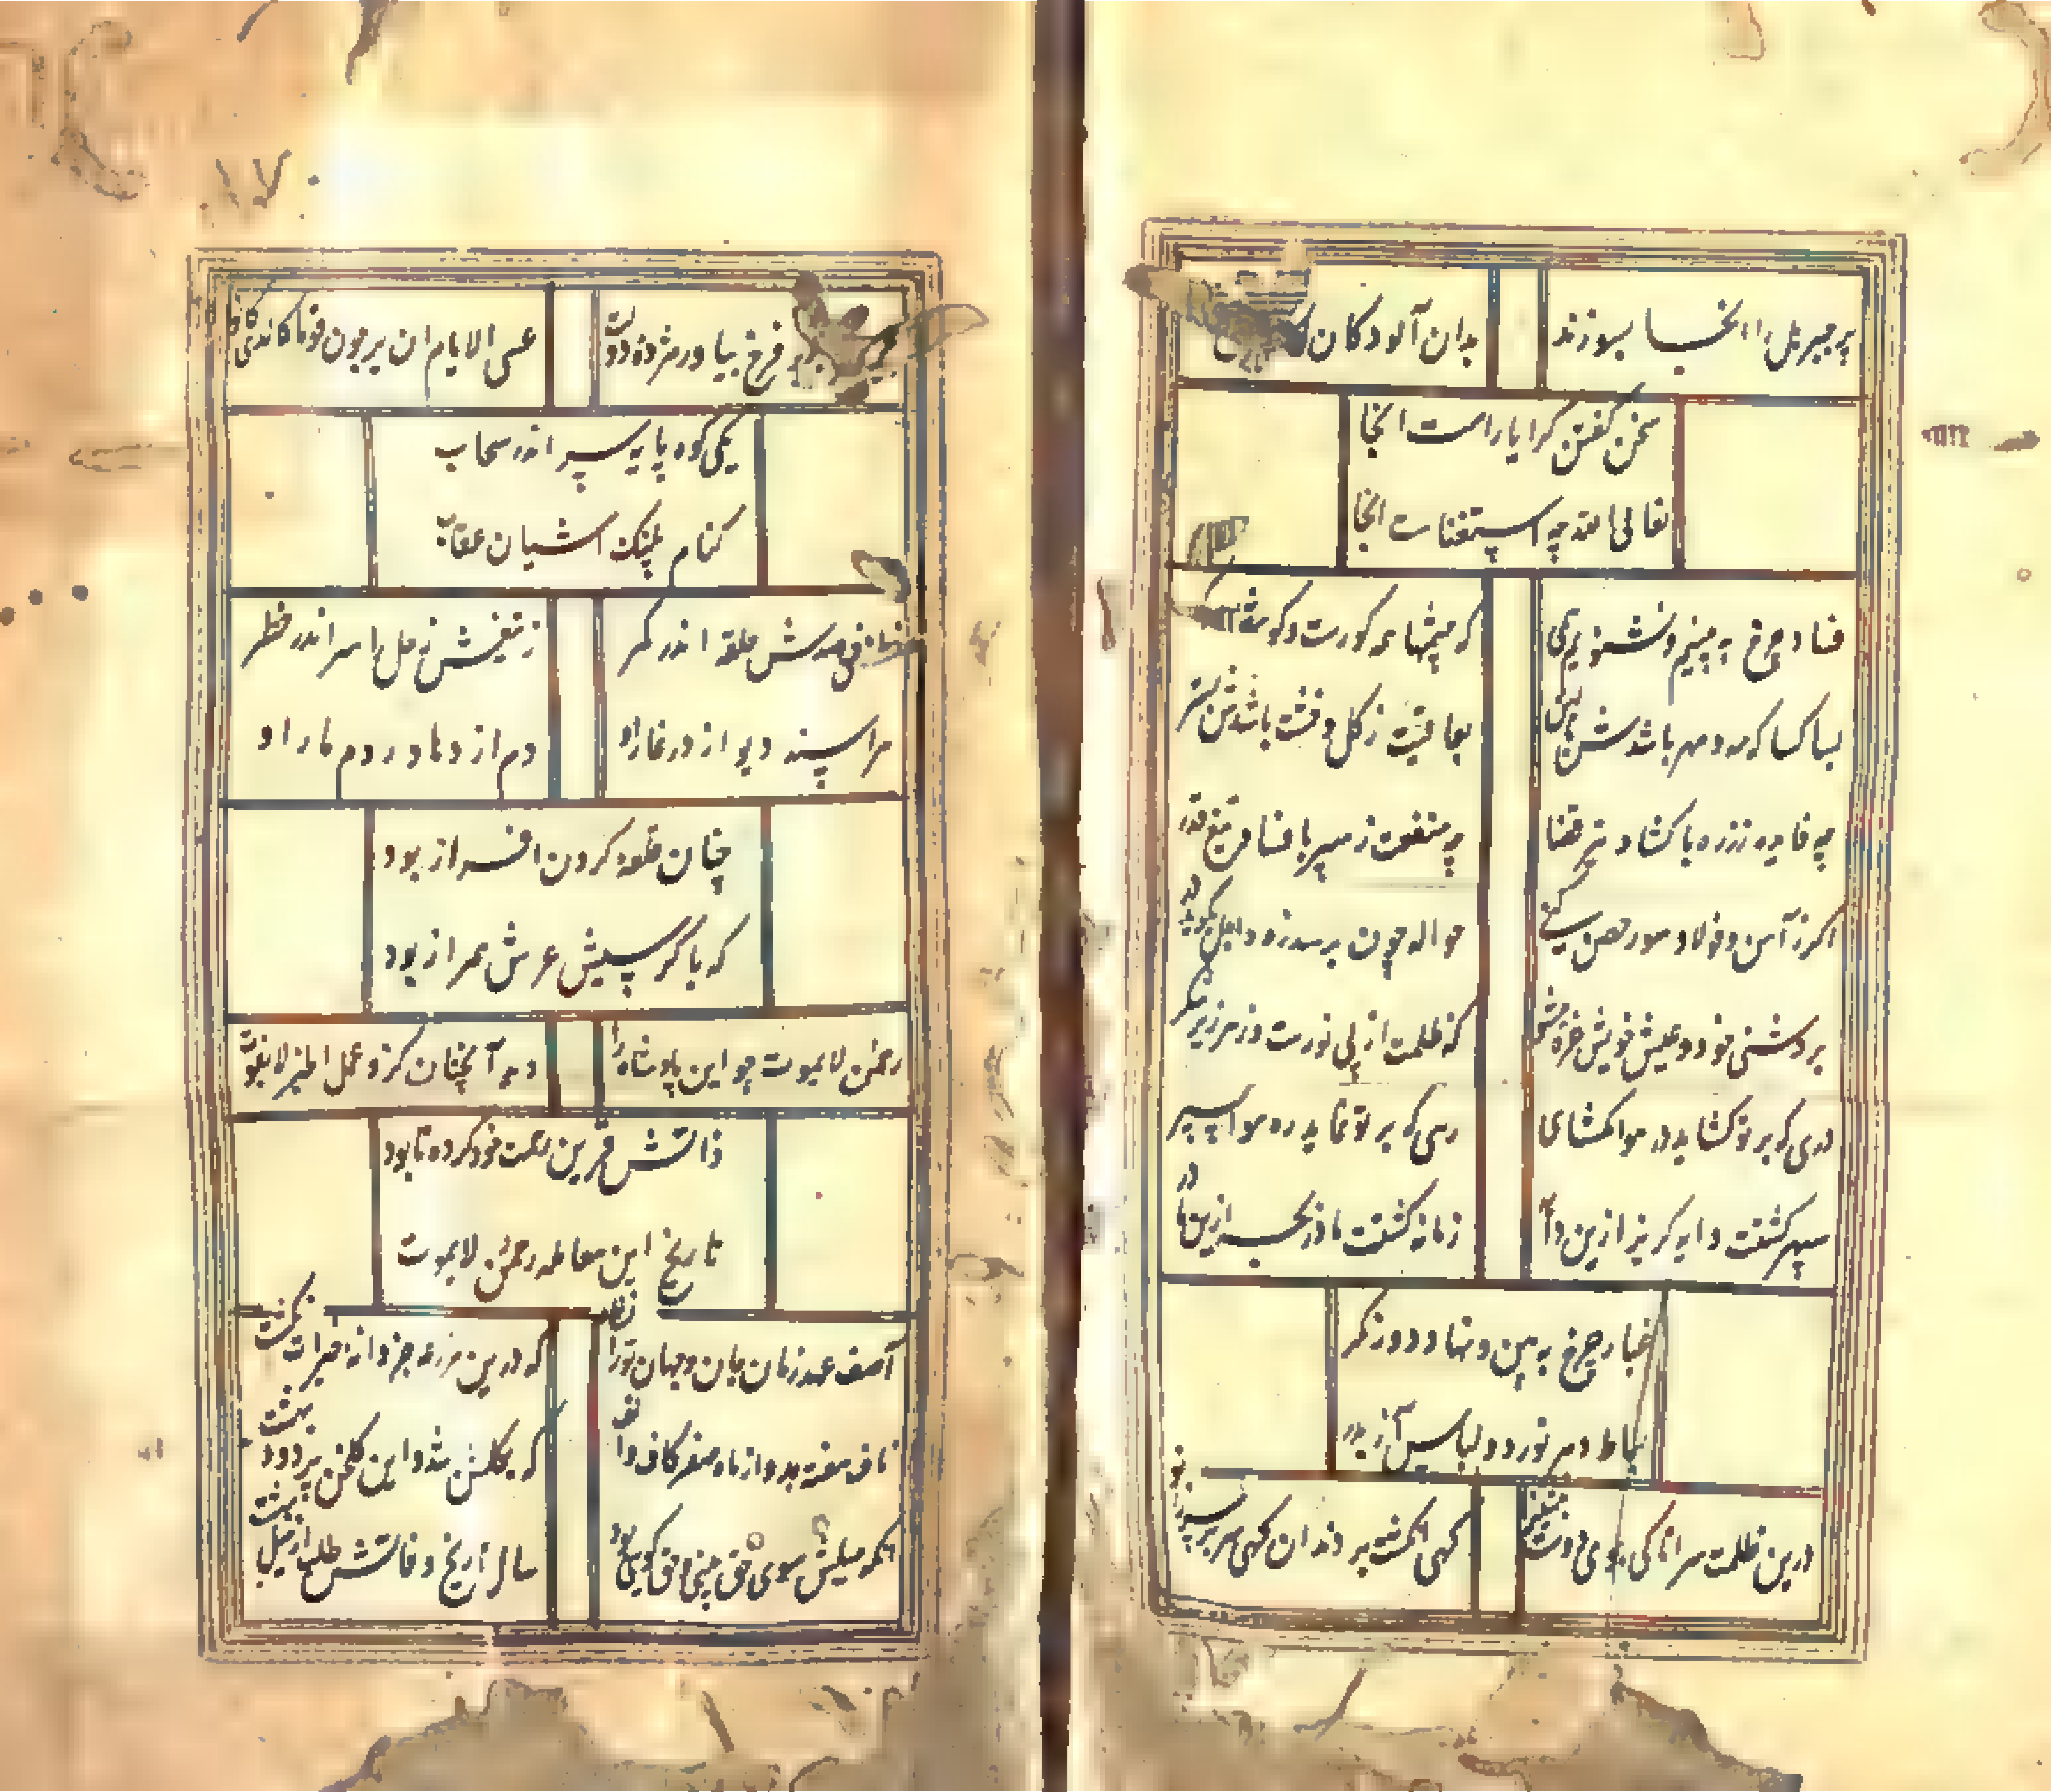 پر جبریل را اینجا بسوزند
بدان آلودکان
سخن کفتن کرا یاراست اینجا
تعالی الله چه استغناست اینجا
قضا و چرخ نه بینیم و نشنویم همی
که چشمها همه کورست و کوشها
بسا کسا که مه و مهر باشدش بالین
بعاقبت ز کل و خشت باشدش بستر
چه فایده ز زره با کشاد تیر قضا
چه منفعت ز سپر با قضا و تیغ قدر
اکر ز آهن و فولاد سوده حصن کنی
حواله چون برسد زود اجل بکوبد در
بروشنی خود و عیش خویش غره مشو
که ظلمت از پی نورست و زهر زیر شکر
دری که بر تو کشاید در هوا مکشای
رهی که بر تو نماید ره هوا مسپر
سپهر کشت دایه کریز ازین دایه
زمانه کشت مادر بحسب ازین مادر
غبار چرخ ببین و نهاد دور نکر
بساط دهر نورد و لباس آز بدر
درین ظلمت سرا تا کی بوی دوست بنشینم
کهی انکشت بر دندان کهی سر بر سر زانو
فرخ بیا ور مژده دولت
عسی الایام ان یرجعن قوما کالذی کانوا
یکی کوه پایه سپر اندر سحاب
کنام پلنک آشیان عقاب
حلقه اندر کمر
ز تیغش زحل را سر اندر خطر
هراسنده دیو از در غار او
دم اژدها در دم مار او
چنان قلعه کردن افراز بود
که با کرسیش عرش همراز بود
رحمن لایموت چو این پادشاه را
دید آنچنان کزو عمل الخیر لایفوت
ذاتش قرین رحمت خود کرد تا بود
تاریخ این معامله رحمن لایموت
آصف عهد زمان جان و جهان تورانشاه
که درین مزرعه جز دانه خیرات نکشت
ناف هفته بد و از ماه صفر کاف و الف
که بکلشن شد و این کلخن پر دود بهشت
انکه میلش سوی حق بینی و حق کویی بود
سال تاریخ وفاتش طلب از میل بهشت